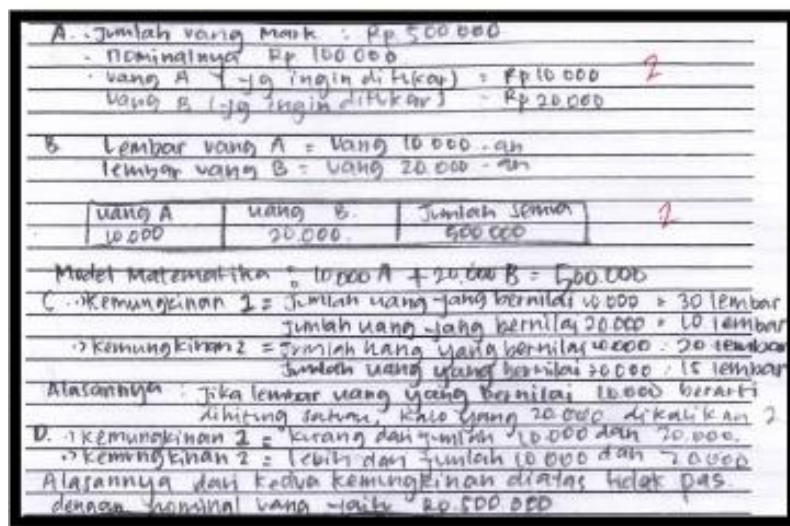 A. · Jumlah uang Mark : Rp 500 000
· nominalnya Rp 100 000
· uang A (yg ingin ditukar) = Rp 10 000 2
uang B (yg ingin ditukar) = Rp 20.000
B Lembar uang A = uang 10 000 - an
lembar uang B = uang 20.000 - an
uang A uang B. Jumlah semua 2
10.000 20.000. 500 000
Model Matematika : 10 000 A + 20.000 B = 500.000
C. Kemungkinan 1 = Jumlah uang yang bernilai 10 000 = 30 lembar
Jumlah uang yang bernilai 20.000 = 10 lembar
Kemungkinan 2 = Jumlah uang yang bernilai 10.000 : 20 lembar
Jumlah uang yang bernilai 20000 : 15 lembar
Alasannya : Jika lembar uang yang bernilai 10.000 berarti
dihitung satuan, kalo yang 20.000 dikalikan 2
D. Kemungkinan 1 = kurang dari jumlah 10.000 dan 20.000.
Kemungkinan 2 = lebih dari jumlah 10 000 dan 20000
Alasannya dari kedua kemungkinan diatas tidak pas
dengan nominal uang yaitu Rp.500 000